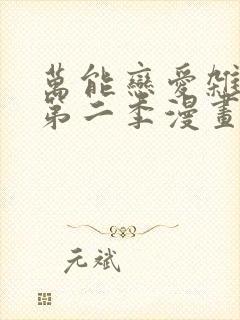 萬能戀愛雜
第二季漫畫
元斌